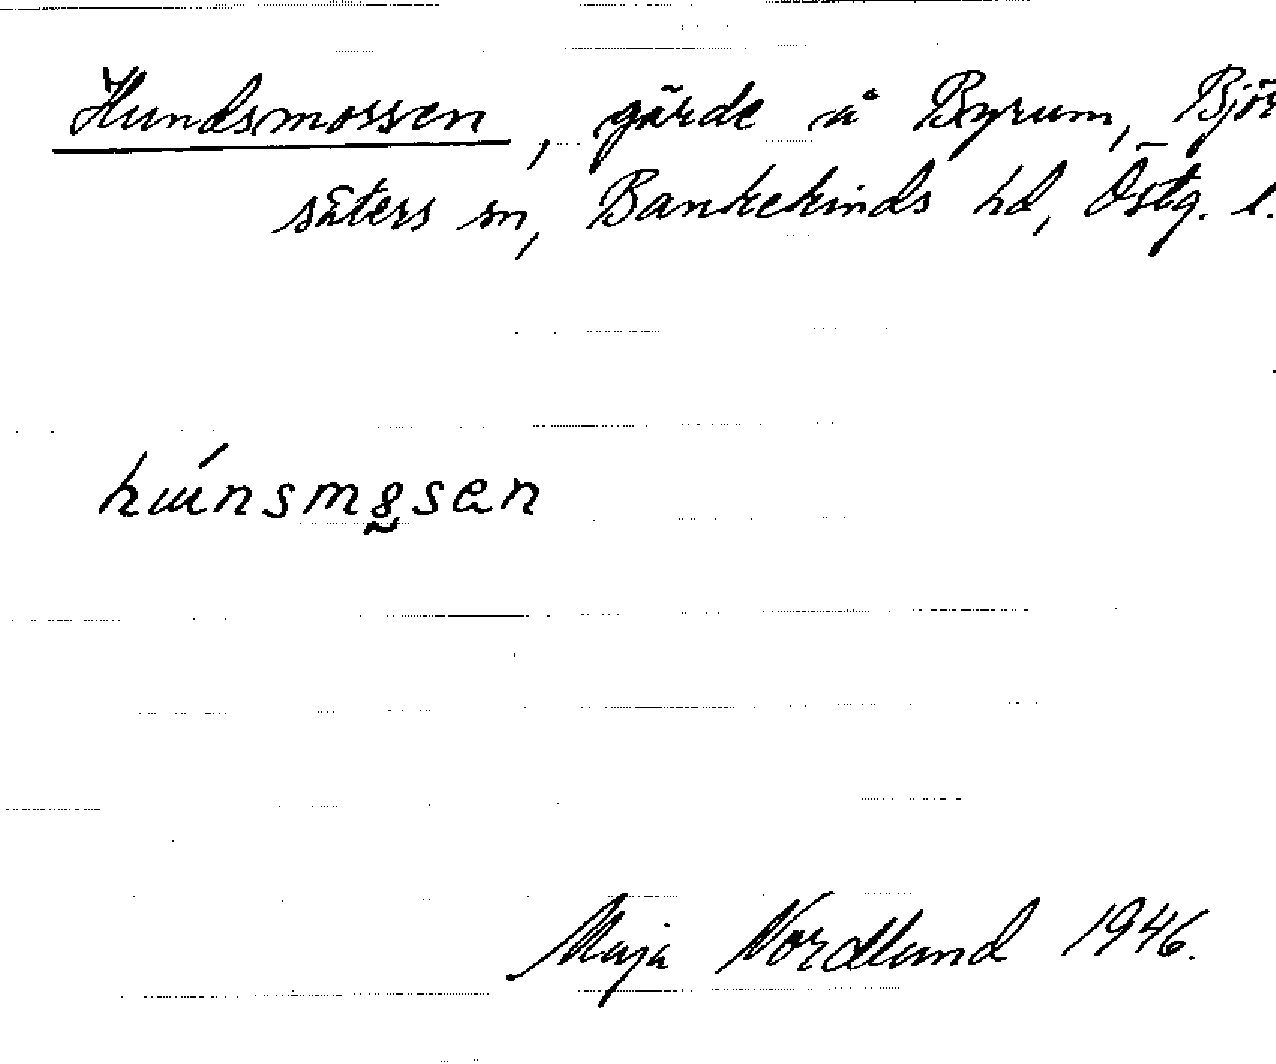 Hundsmossen, gärde å Byrum, Björ
säters sn, Bankekinds hd, Östg. l.
Maja Nordlund 1946.